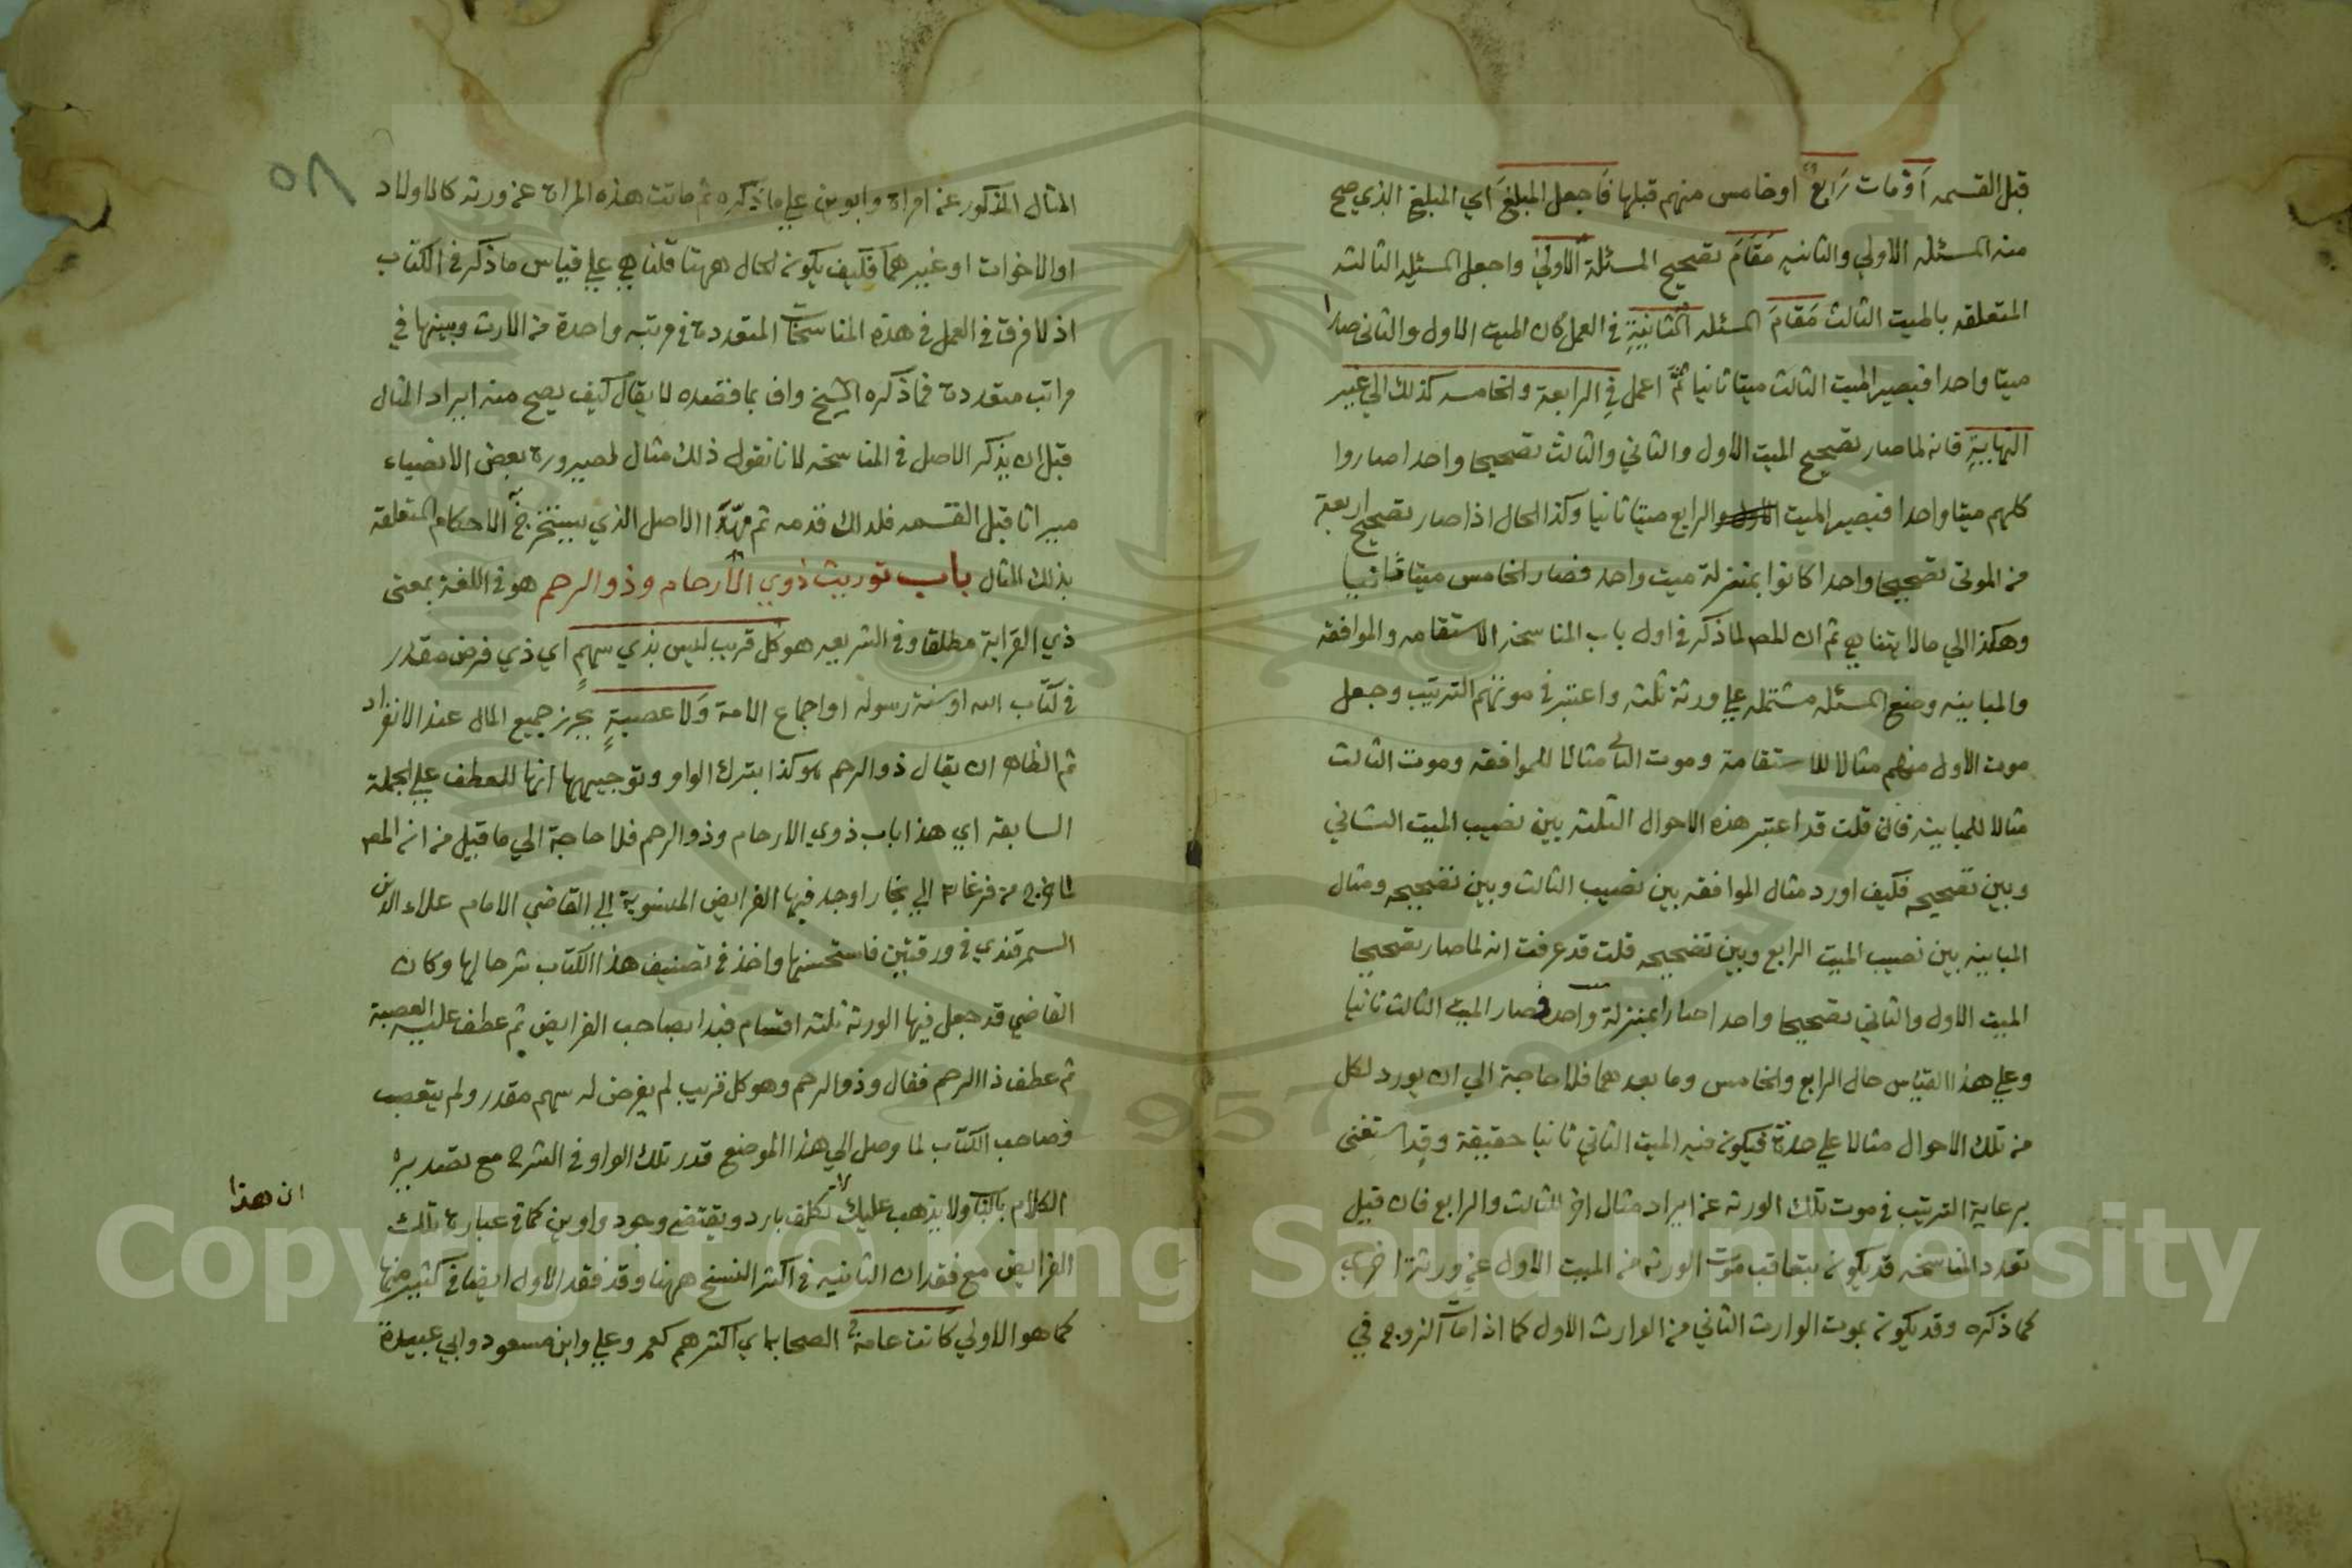 قبل القسمه اوْ مات رَابع او خامس منهم قبلها فَاجعل المبلغَ اي المبلغ الذي صح
منه المسئله الاولي والثانيه مَقَامَ تصحيح المسئلة الاولي واجعل المسئله الثالثه
المتعلقه بالميت الثالث مَقَامَ المسئله الثانيةِ في العمل كان الميت الاول والثاني صارا
ميتا واحدا فيصير الميت الثالث ميتا ثانيا ثمَّ اعمل في الرابعة والخامسه كذلك الي غير
النهايةِ فانه لما صار تصحيح الميت الاول والثاني والثالث تصحيحا واحدا صاروا
كلهم ميتا واحدا فيصير الميت الرابع ميتا ثانيا وكذا الحال اذا صار تصحيح اربعة
من الموتي تصحيحا واحدا كانوا بمنزلة ميت واحد فصار الخامس ميتا ثانيا
وهكذا الي مالا يتناهي ثم ان المص لما ذكر في اول باب المناسخه الاستقامه والموافقه
والمباينه وضع المسئله مشتمله علي ورثة ثلثه واعتبر في موتهم الترتيب وجعل
موت الاول منهم مثالا للاستقامة وموت الثاني مثالا للموافقه وموت الثالث
مثالا للمباينه فان قلت قد اعتبر هذه الاحوال الثلثه بين نصيب الميت الثاني
وبين تصحيحه فكيف اورد مثال الموافقه بين نصيب الثالث وبين تصحيحه ومثال
المباينه بين نصيب الميت الرابع وبين تصحيحه قلت قد عرفت انه لما صار تصحيحا
الميت الاول والثاني تصحيحا واحدا صارا بمنزلة واحد فصار الميت الثالث ثانيا
وعلي هذا القياس حال الرابع والخامس وما بعدهما فلا حاجة الي ان يورد لكل
من تلك الاحوال مثالا علي حدة فيكون فيه الميت الثاني ثانيا حقيقة وقد استغني
برعاية الترتيب في موت تلك الورثه عن ايراد مثال اخر للثالث والرابع فان قيل
تعدد المناسخه قد يكون بتعاقب موت الورثه من الميت الاول عن ورثة اخري
كما ذكره وقد يكون بموت الوارث الثاني من الوارث الاول كما اذا مات الزوج في
٥٨
المثال المذكور عن امراة وابوين علي ما ذكره ثم ماتت هذه المراة عن ورثه كالاولاد
اوالاخوات او غيرهما فكيف يكون الحال ههنا قلنا هي علي قياس ما ذكر في الكتاب
اذ لا فرق في العمل في هذه المناسخات المتعددة في مرتبه واحدة من الارث وبينها في
مراتب متعددة فما ذكره الشيخ واف بما قصده لا يقال كيف يصح منه ايراد المثال
قبل ان يذكر الاصل في المناسخه لانا نقول ذلك مثال لصيرورة بعض الانصباء
ميراثا قبل القسمه فلذلك قدمه ثم مهد الاصل الذي يستخرج الاحكام المتعلقة
بذلك المثال باب توريث ذوي الأرحام وذو الرحم هو في اللغة بمعني
ذي القرابة مطلقا وفي الشريعه هو كل قريب ليس بذي سهمٍ اي ذي فرض مقدر
في كتاب الله او سنة رسوله او اجماع الامة وَلا عصبةٍ يحرز جميع المال عند الانفراد
ثم الظاهر ان يقال ذو الرحم هو كذا بترك الواو وتوجيهها انها للعطف علي الجملة
السابقة اي هذا باب ذوي الارحام وذو الرحم فلا حاجة الي ما قيل من انه المص
لما خرج من فرغانه الي بخارا وجد فيها الفرايض المنسوبة الي القاضي الامام علاء الدين
السمرقندي في ورقتين فاستحسنها واخذ في تصنيف هذا الكتاب شرحا لها وكان
القاضي قد جعل فيها الورثه ثلثه اقسام فبدا بصاحب الفرايض ثم عطف عليه العصبة
ثم عطف ذا الرحم فقال وذو الرحم وهو كل قريب لم يفرض له سهم مقدر ولم يتعصب
فصاحب الكتاب لما وصل الي هذا الموضع قدر تلك الواو في الشرح مع تصديره
الكلام بالباب ولا يذهب عليك انه تكلف بارد ويقتضي وجود واوين كما في عبارة تلك
الفرايض مع فقدان الثانيه في اكثر النسخ ههنا وقد فقد الاول ايضا في كثير منها
كما هو الاولي كانت عامة الصحابه اي اكثرهم كعمر وعلي وابن مسعود وابي عبيدة
ان هذا
Copyright © King Saud University
1957